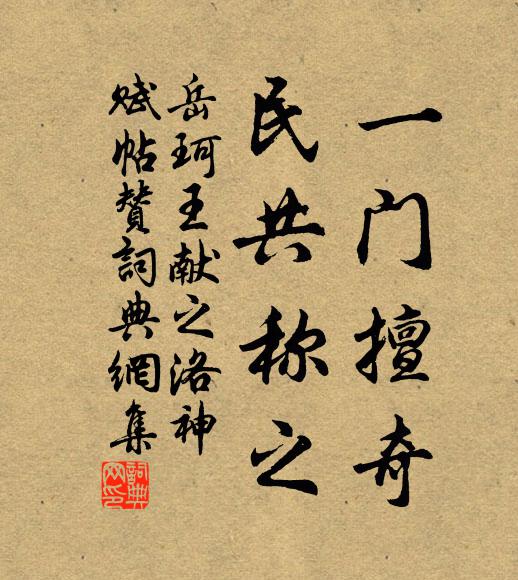 一门擅奇
民共称之
岳珂王献之洛神
赋帖赞词典網集
詞典网印